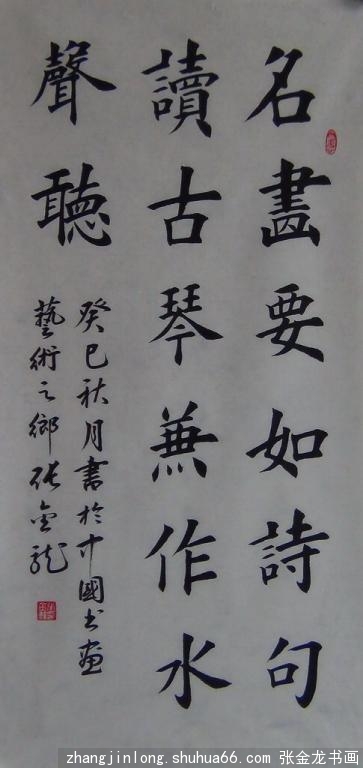 名畫要如詩句
讀古琴兼作水
聲聽
癸巳秋月書於中國书画
藝術之鄉张金龙
zhangjinlong.shuhua66.com 张金龙书画